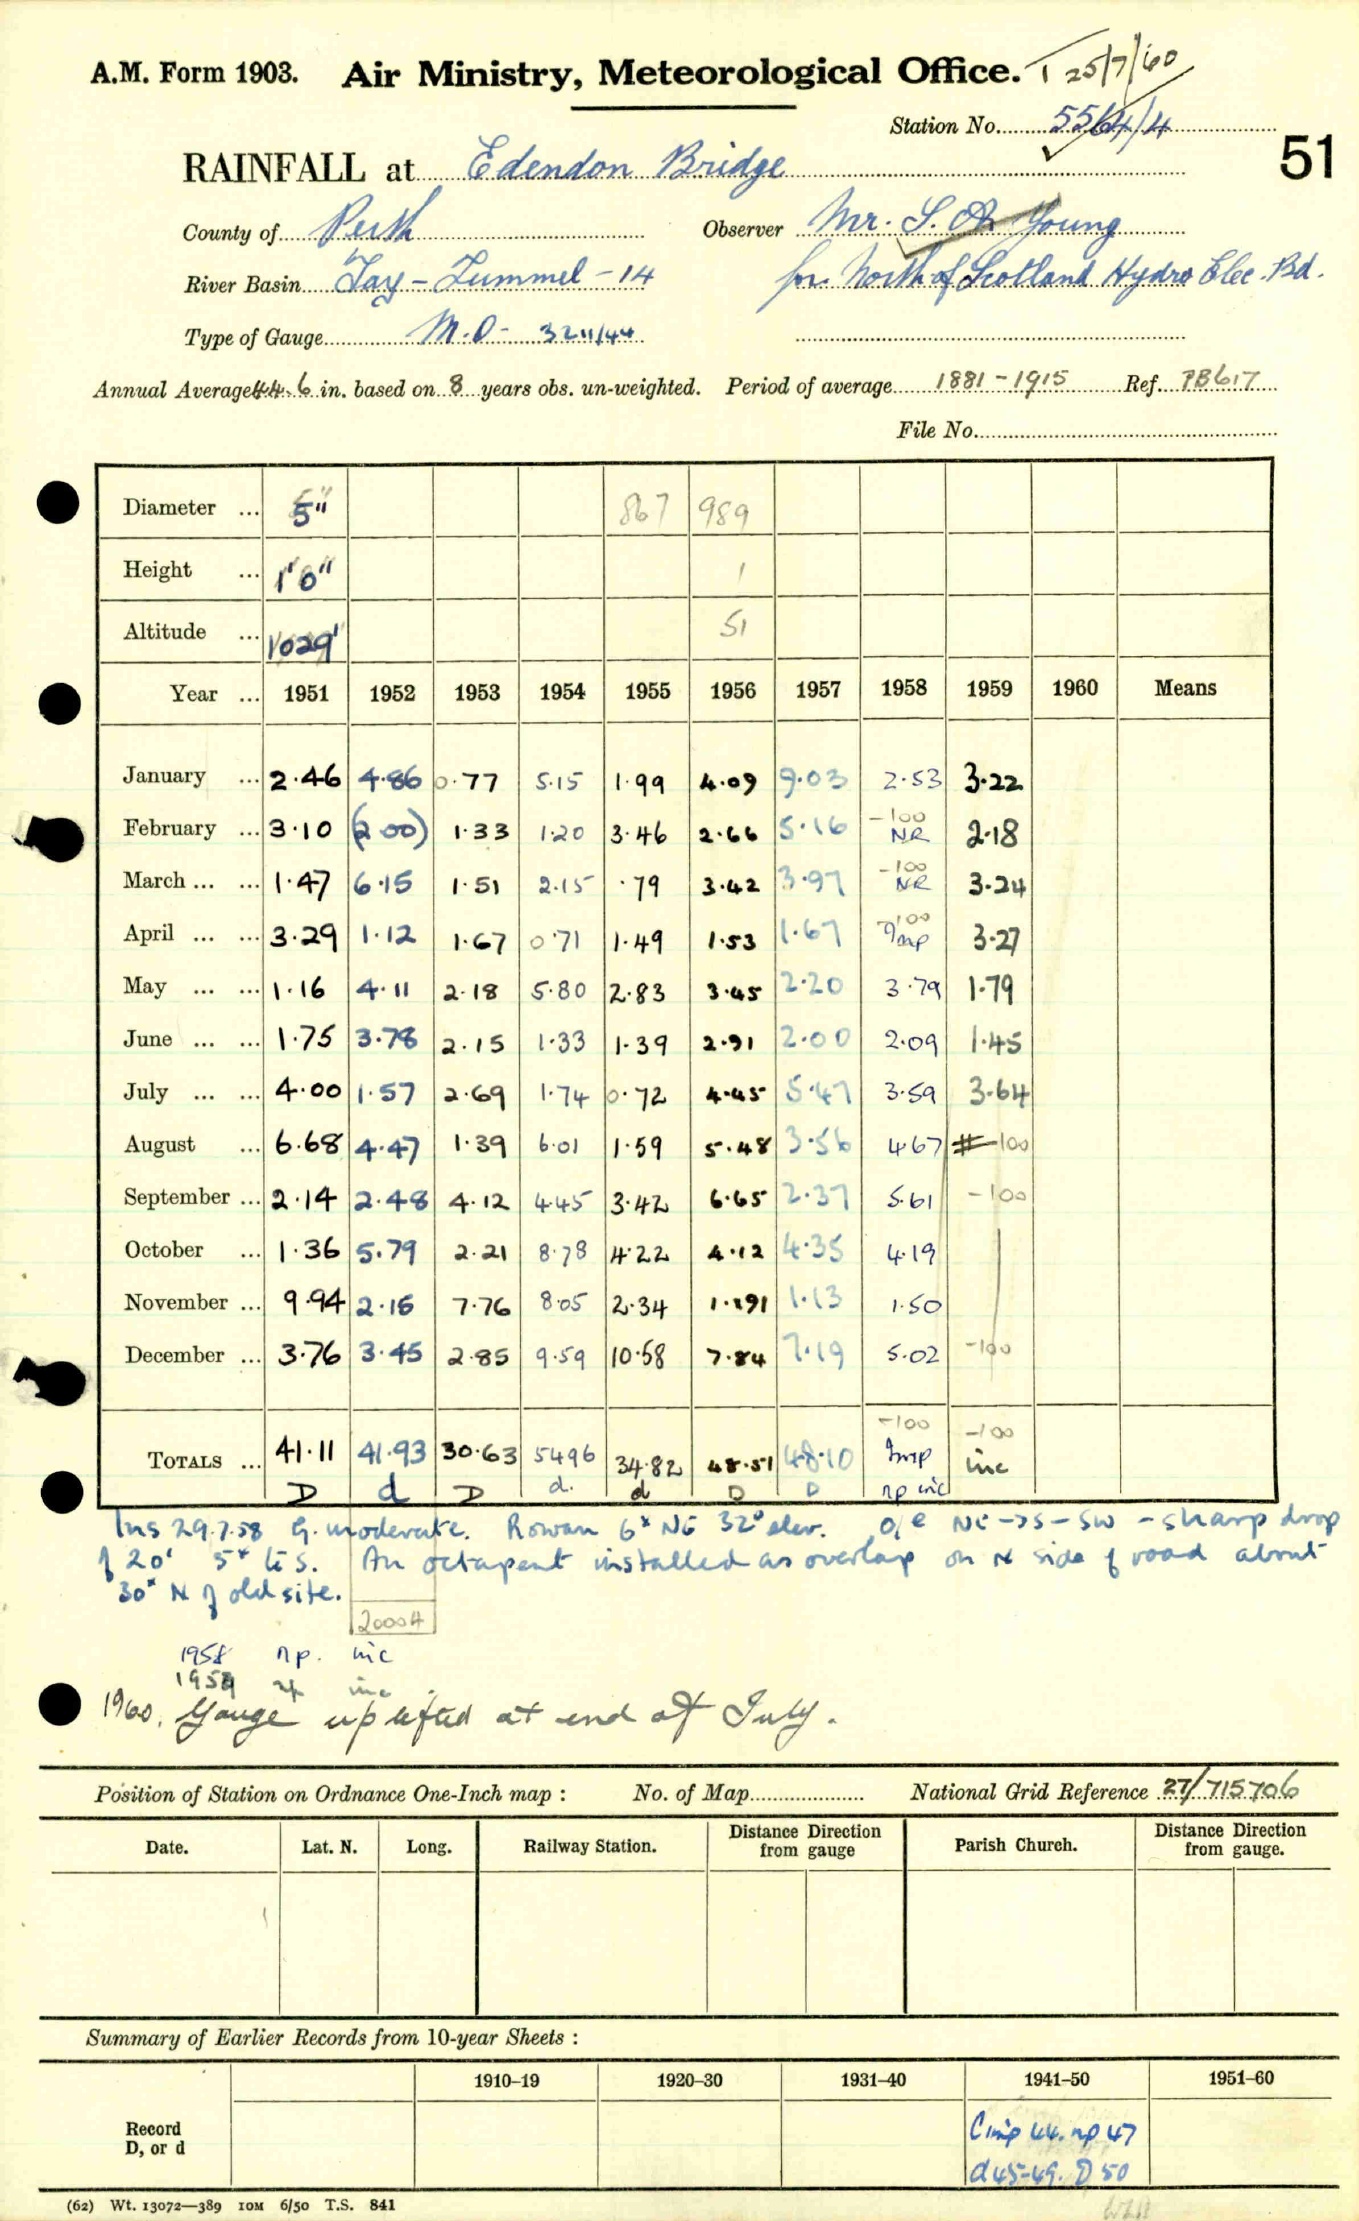 A.M. Form 1903. Air Ministry, Meteorological Office. 25/7/60
Station No. 5564/4
51
RAINFALL at Edendon Bridge
County of Perth Observer Mr. S. A. Young
River Basin Tay - Tummel - 14 for North of Scotland Hydro Elec. Bd.
Type of Gauge M.O. 3211/44
Annual Average 44.6 in. based on 8 years obs. un-weighted. Period of average 1881-1915 Ref. PB617
File No.
Diameter ... 5" 867 989
Height ... 1'0" 1
Altitude ... 1029' 51
Year ... 1951 1952 1953 1954 1955 1956 1957 1958 1959 1960 Means
January ... 2.46 4.86 0.77 5.15 1.99 4.09 9.03 2.53 3.22
February ... 3.10 (2.00) 1.33 1.20 3.46 2.66 5.16 -100 NR 2.18
March ... ... 1.47 6.15 1.51 2.15 .79 3.42 3.97 -100 NR 3.24
April ... ... 3.29 1.12 1.67 0.71 1.49 1.53 1.67 -100 Imp 3.27
May ... ... 1.16 4.11 2.18 5.80 2.83 3.45 2.20 3.79 1.79
June ... ... 1.75 3.78 2.15 1.33 1.39 2.91 2.00 2.09 1.45
July ... ... 4.00 1.57 2.69 1.74 0.72 4.45 5.47 3.59 3.64
August ... 6.68 4.47 1.39 6.01 1.59 5.48 3.56 4.67 -100
September ... 2.14 2.48 4.12 4.45 3.42 6.65 2.37 5.61 -100
October ... 1.36 5.79 2.21 8.78 4.22 4.12 4.35 4.19
November ... 9.94 2.15 7.76 8.05 2.34 1.13 1.50
December ... 3.76 3.45 2.85 9.59 10.58 7.84 7.19 5.02 -100
-100 -100
TOTALS ... 41.11 41.93 30.63 54.96 34.82 48.51 48.10 Imp inc
D d D d. d D D np inc
Ins 29.7.58 G. moderate. Rowan 6x NE 32° elev. O/e NE->S-SW - sharp drop
of 20' 5x to S. An octapent installed as overlap on N side of road about
30x N of old site.
20004
1958 np. inc
1959 inc
1960. Gauge uplifted at end of July.
Position of Station on Ordnance One-Inch map : No. of Map National Grid Reference 27/715706
Date. Lat. N. Long. Railway Station. Distance from Direction gauge Parish Church. Distance from Direction gauge.
Summary of Earlier Records from 10-year Sheets :
1910-19 1920-30 1931-40 1941-50 1951-60
Record D, or d
C imp 44. np 47
d 45-49. D 50
(62) Wt. 13072—389 10M 6/50 T.S. 841